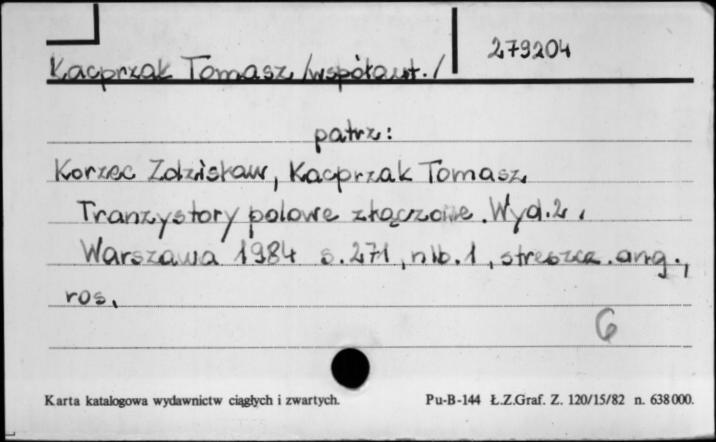 279204
Kacprzak Tomasz /współaut./
patrz:
Korzec Zdzisław, Kacprzak Tomasz
Tranzystory polowe złączowe. Wyd. 2.
Warszawa 1984 s. 271, nlb. 1, streszcz. ang.,
ros.
6
Karta katalogowa wydawnictw ciągłych i zwartych.
Pu-B-144 Ł.Z.Graf. Z. 120/15/82 n. 638000.